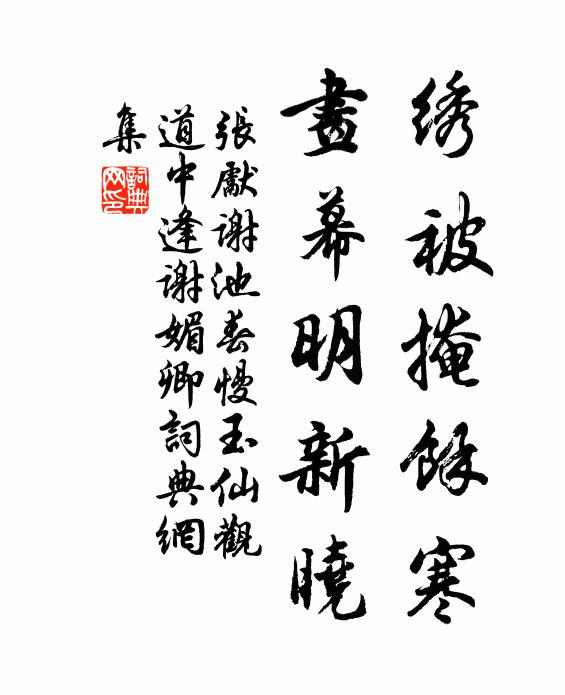 绣被掩餘寒
畫幕明新曉
張獻谢池春慢玉仙觀
道中逢谢媚卿詞典網
集
詞典
网印